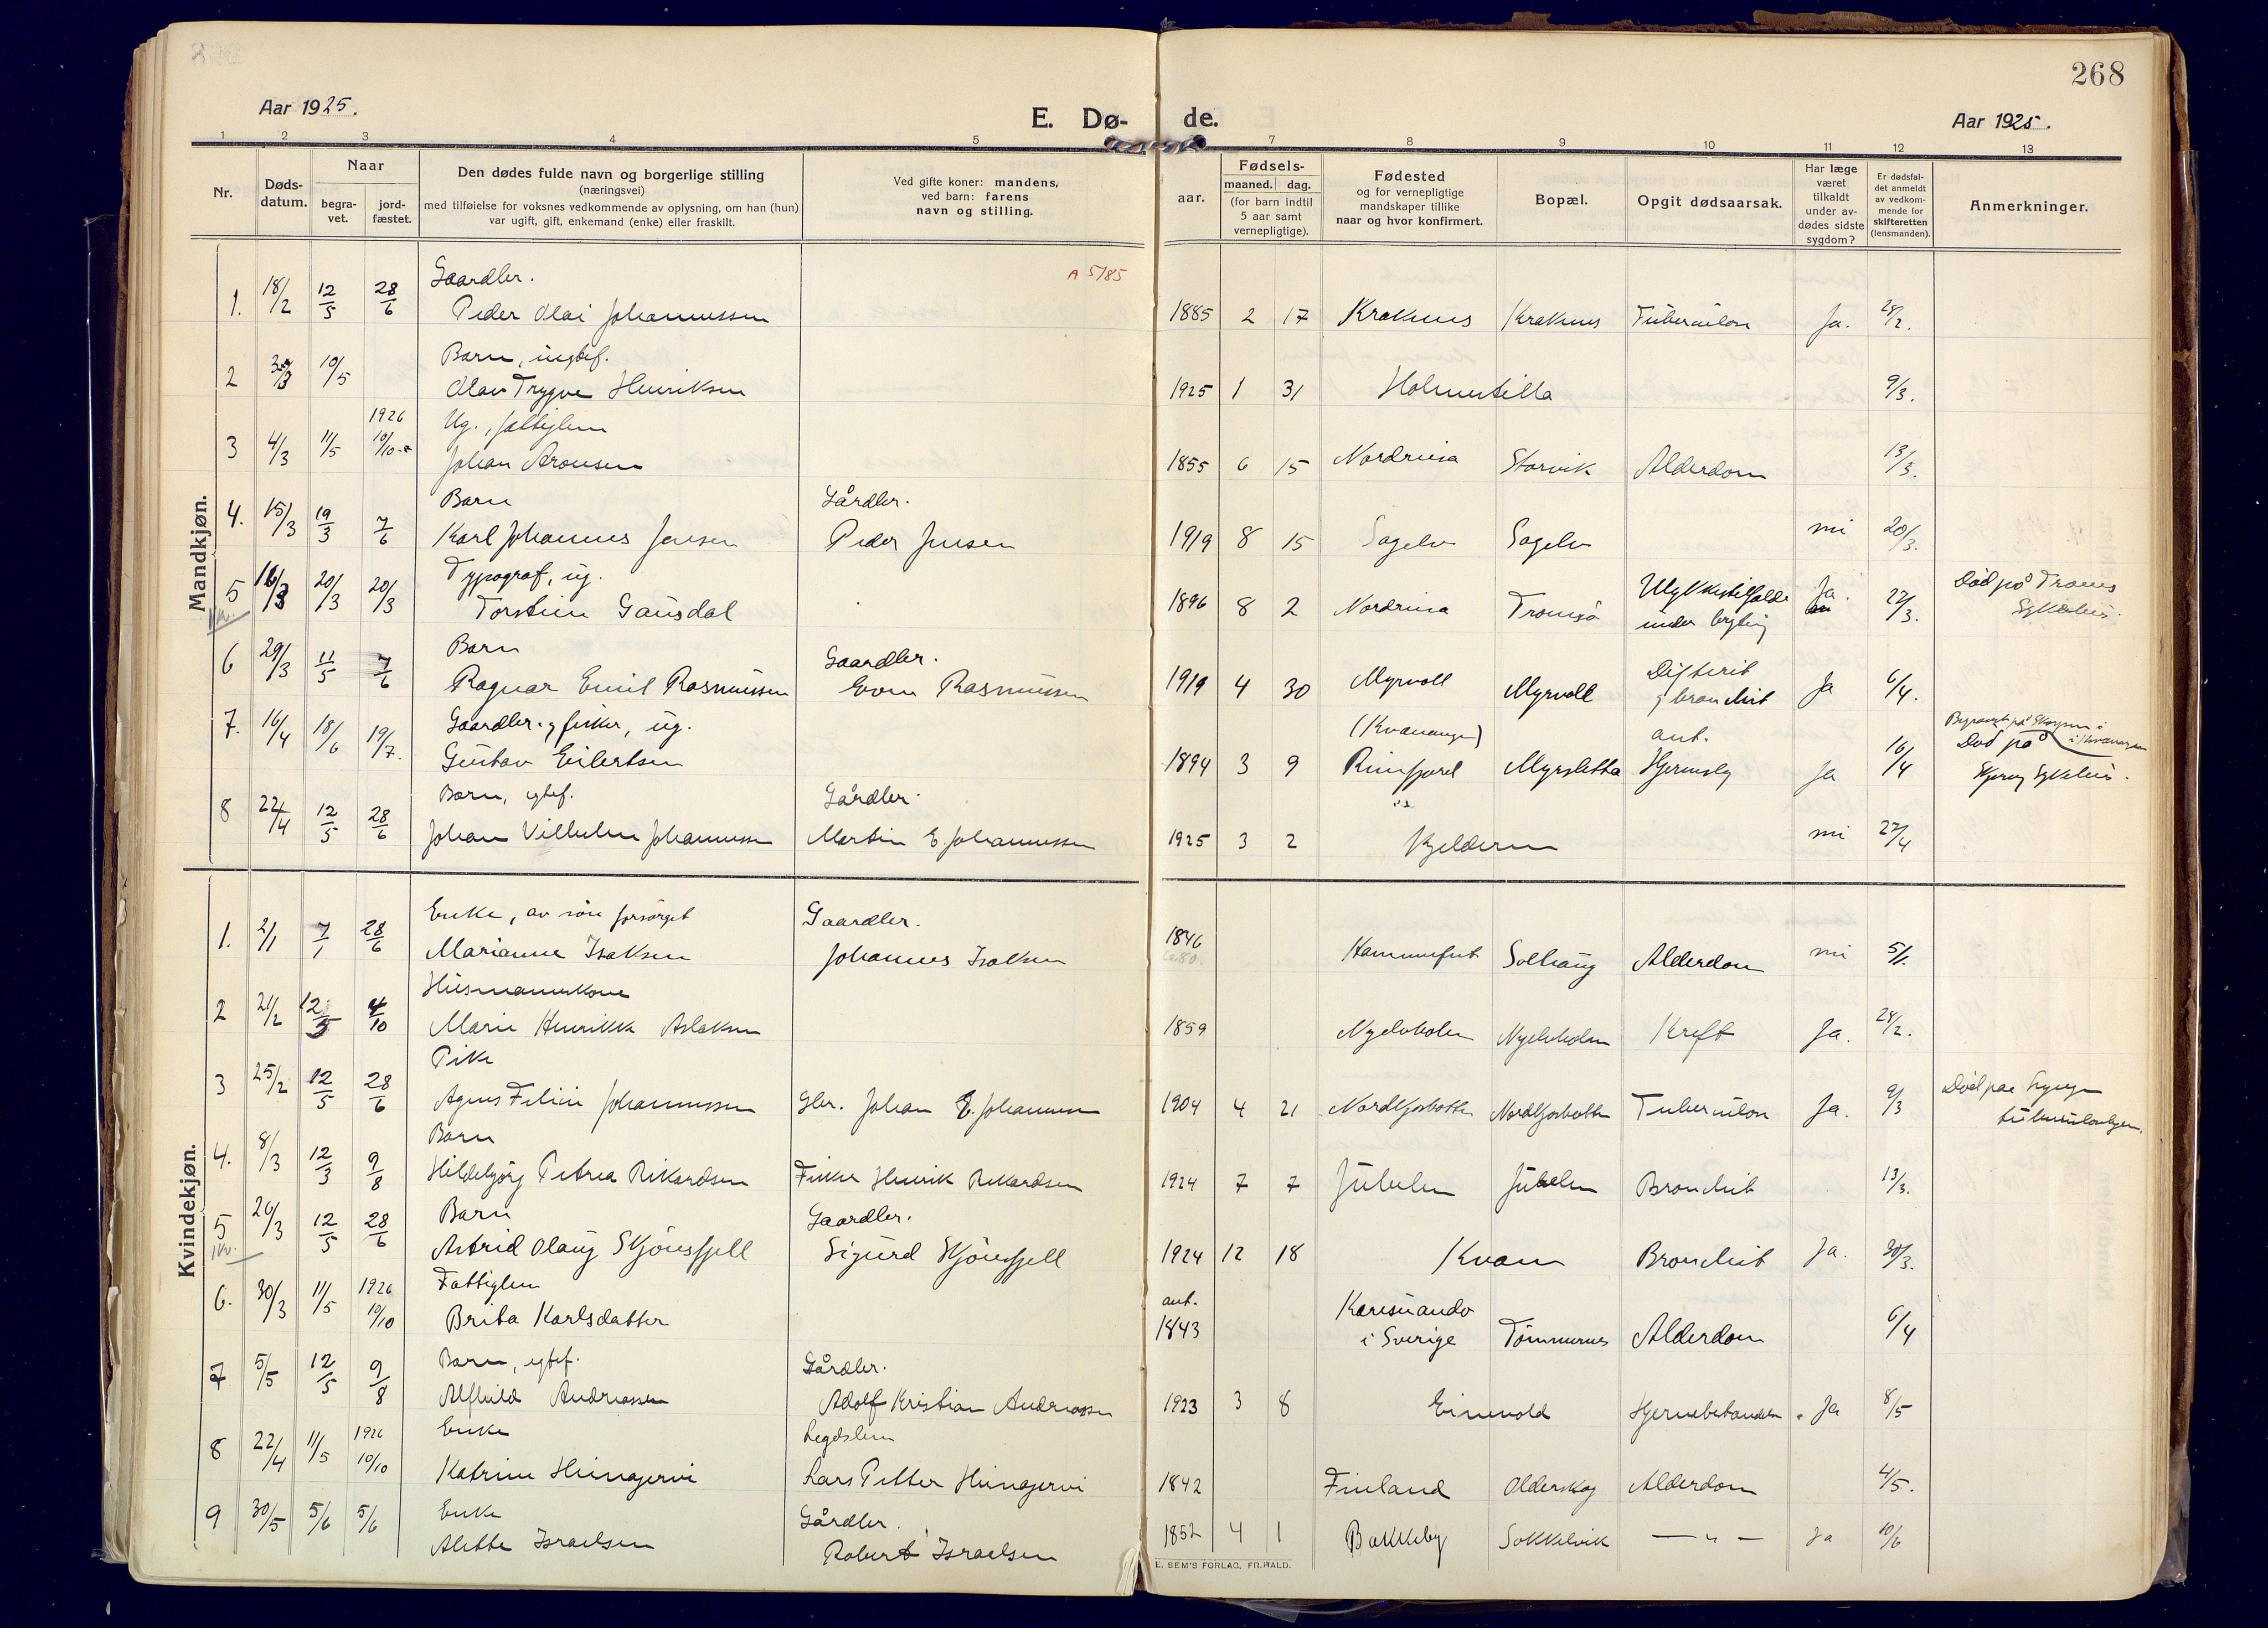 268
Aar 1925.
E. Dø- de.
Aar 1925.
1 2 3 4 5 7 8 9 10 11 12 13
Nr.
Døds-
datum.
Naar
begra-
vet.
jord-
fæstet.
Den dødes fulde navn og borgerlige stilling
(næringsvei)
med tilføielse for voksnes vedkommende av oplysning, om han (hun)
var ugift, gift, enkemand (enke) eller fraskilt.
Ved gifte koner: mandens,
ved barn: farens
navn og stilling.
aar.
Fødsels-
maaned. dag.
(for barn indtil
5 aar samt
vernepligtige).
Fødested
og for vernepligtige
mandskaper tillike
naar og hvor konfirmert.
Bopæl.
Opgit dødsaarsak.
Har læge
været
tilkaldt
under av-
dødes sidste
sygdom?
Er dødsfal-
det anmeldt
av vedkom-
mende for
skifteretten
(lensmanden).
Anmerkninger.
Mandkjøn.
Gaardbr. A 5185
1. 18/2 12/5 28/6 Peder Olai Johannussen 1885 2 17 Kraknes Kraknes Tuberculon Ja. 28/2.
Barn, ugtef.
2 10/5 Olav Trygve Henriksen 1925 1 31 9/3.
1926 Ug., fattiglem
3 4/3 11/5 10/10 Johan Aronsen 1855 6 15 Nordreisa Storvik Alderdom 13/3.
Barn Gårdbr.
4. 15/3 19/3 7/6 Karl Johannes Jensen Peder Jensen 1919 8 15 Sagelv Sagelv 20/3.
Typograf, ug.
5 16/3 20/3 20/3 Torstein Gausdal 1896 8 2 Nordreisa Tromsø Ulykkestilfælde under Ja. 22/3. Død på Troms Sykehus.
Barn Gaardbr.
6 29/3 11/5 7/6 Ragnar Emil Rasmussen Even Rasmussen 1919 4 30 Myrvoll Myrvoll Difterit og bronchit Ja 6/4.
Gaardbr. og fisker, ug. (Kvænangen) ant.
7. 16/4 18/6 19/7. Gustav Eilertsen 1894 3 9 Myrsletta Ja 16/4 Død på Sykehus.
Barn, egtef. Gårdbr.
8 22/4 12/5 28/6 Johan Vilhelm Johannussen Martin E. Johannussen 1925 3 2 Kjelderen 27/4
Kvindekjøn.
Enke, av søn forsørget Gaardbr.
1. 2/1 7/1 28/6 Marianne Isaksen Johannes Isaksen 1846 Hammerfest Solhaug Alderdom 5/1.
Husmannskone
2 21/2 12/5 4/10 Marie Henrikke Aslaksen 1859 Kreft Ja. 28/2.
Pike
3 25/2 12/5 28/6 Agnes Johannussen Gbr. Johan E. Johannussen 1904 4 21 Nordkjosbotten Nordkjosbotten Tuberculon Ja. 9/3 Død paa Lyngen
Barn
4. 8/3 12/3 9/8 Hildebjørg Petrea Rikardsen Fisker Henrik Rikardsen 1924 7 7 Jubelen Jubelen Bronchit 13/3.
Barn Gaardbr.
5 26/3 12/5 28/6 Astrid Olaug Skjønsfjell Sigurd Skjønsfjell 1924 12 18 Kvam Bronchit Ja. 30/3.
1926 Fattiglem ant.
6. 30/3 11/5 10/10 Brita Karlsdatter 1843 Karesuando i Sverige Tømmernes Alderdom 6/4
Barn, egtef. Gårdbr.
7 5/5 12/5 9/8 Alfhild Andreassen Adolf Kristian Andreassen 1923 3 8 Einevold Hjernebetændelse Ja 8/5
1926 Enke Legdslem
8 22/4 11/5 10/10 Katrine Huinagervi Lars Petter Huinagervi 1842 Finland Olderskog Alderdom 4/5.
Enke Gårdbr.
9 30/5 5/6 5/6 Alette Israelsen Robert Israelsen 1852 4 1 Bakkeby Sokkelvik — „ — Ja 10/6
E. SEM'S FORLAG, FR.HALD.